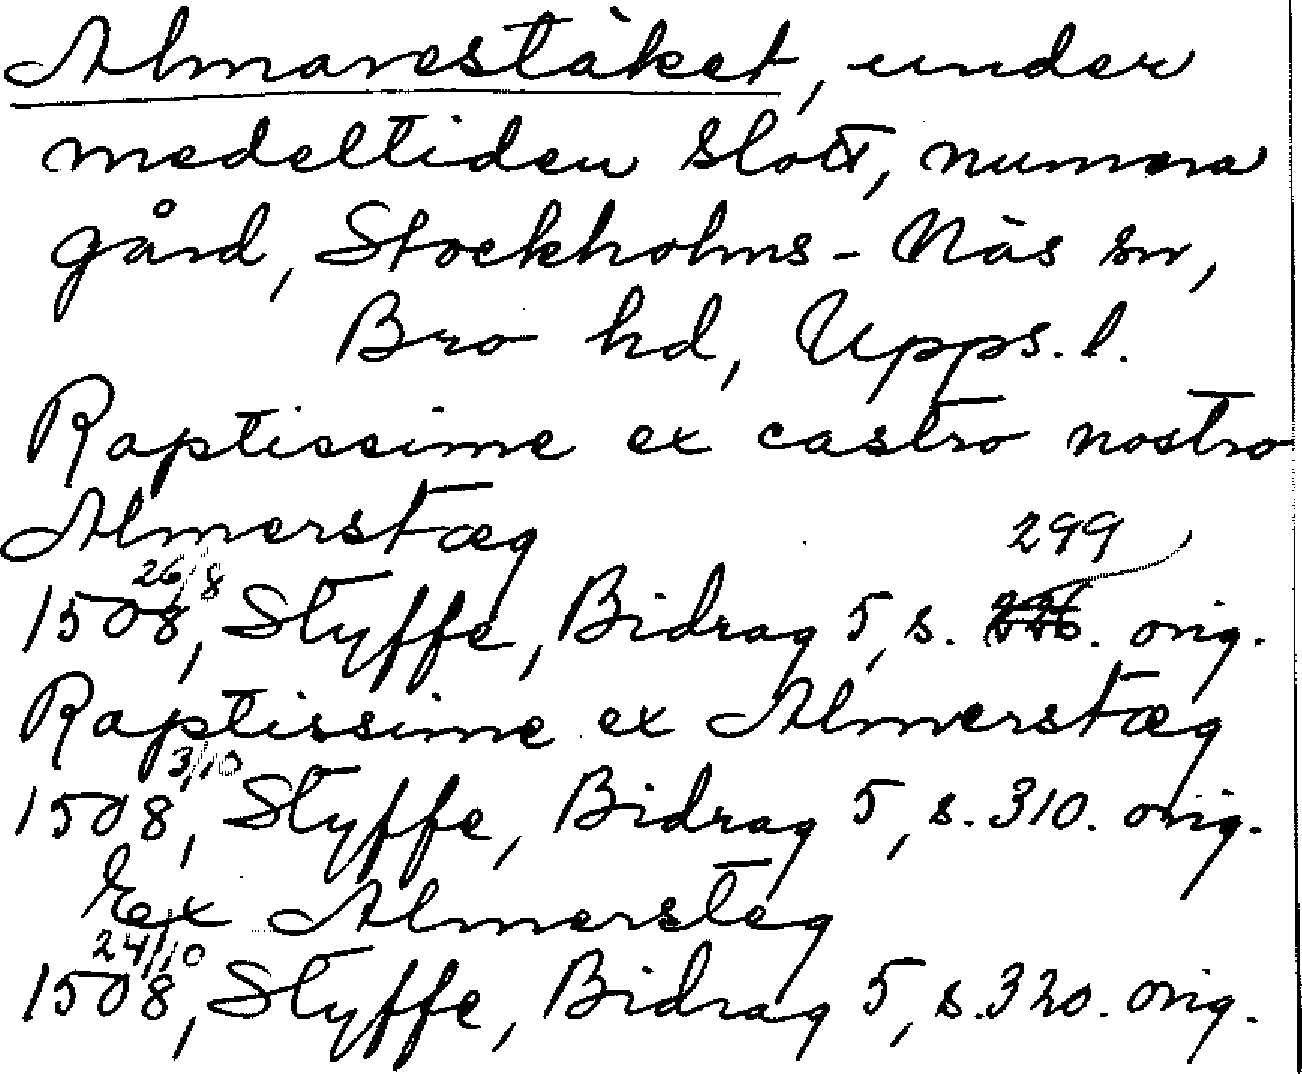 Almarestäket, under
medeltiden slott, numera
gård, Stockholms-Näs sn,
Bro hd, Upps. l.
Raptissime ex castro nostro
Almerstæg
299
26/8
1508, Styffe, Bidrag 5, s. orig.
Raptissime ex Almerstæg
3/10
1508, Styffe, Bidrag 5, s. 310. orig.
Ex Almersteg
24/10
1508, Styffe, Bidrag 5, s. 320. orig.